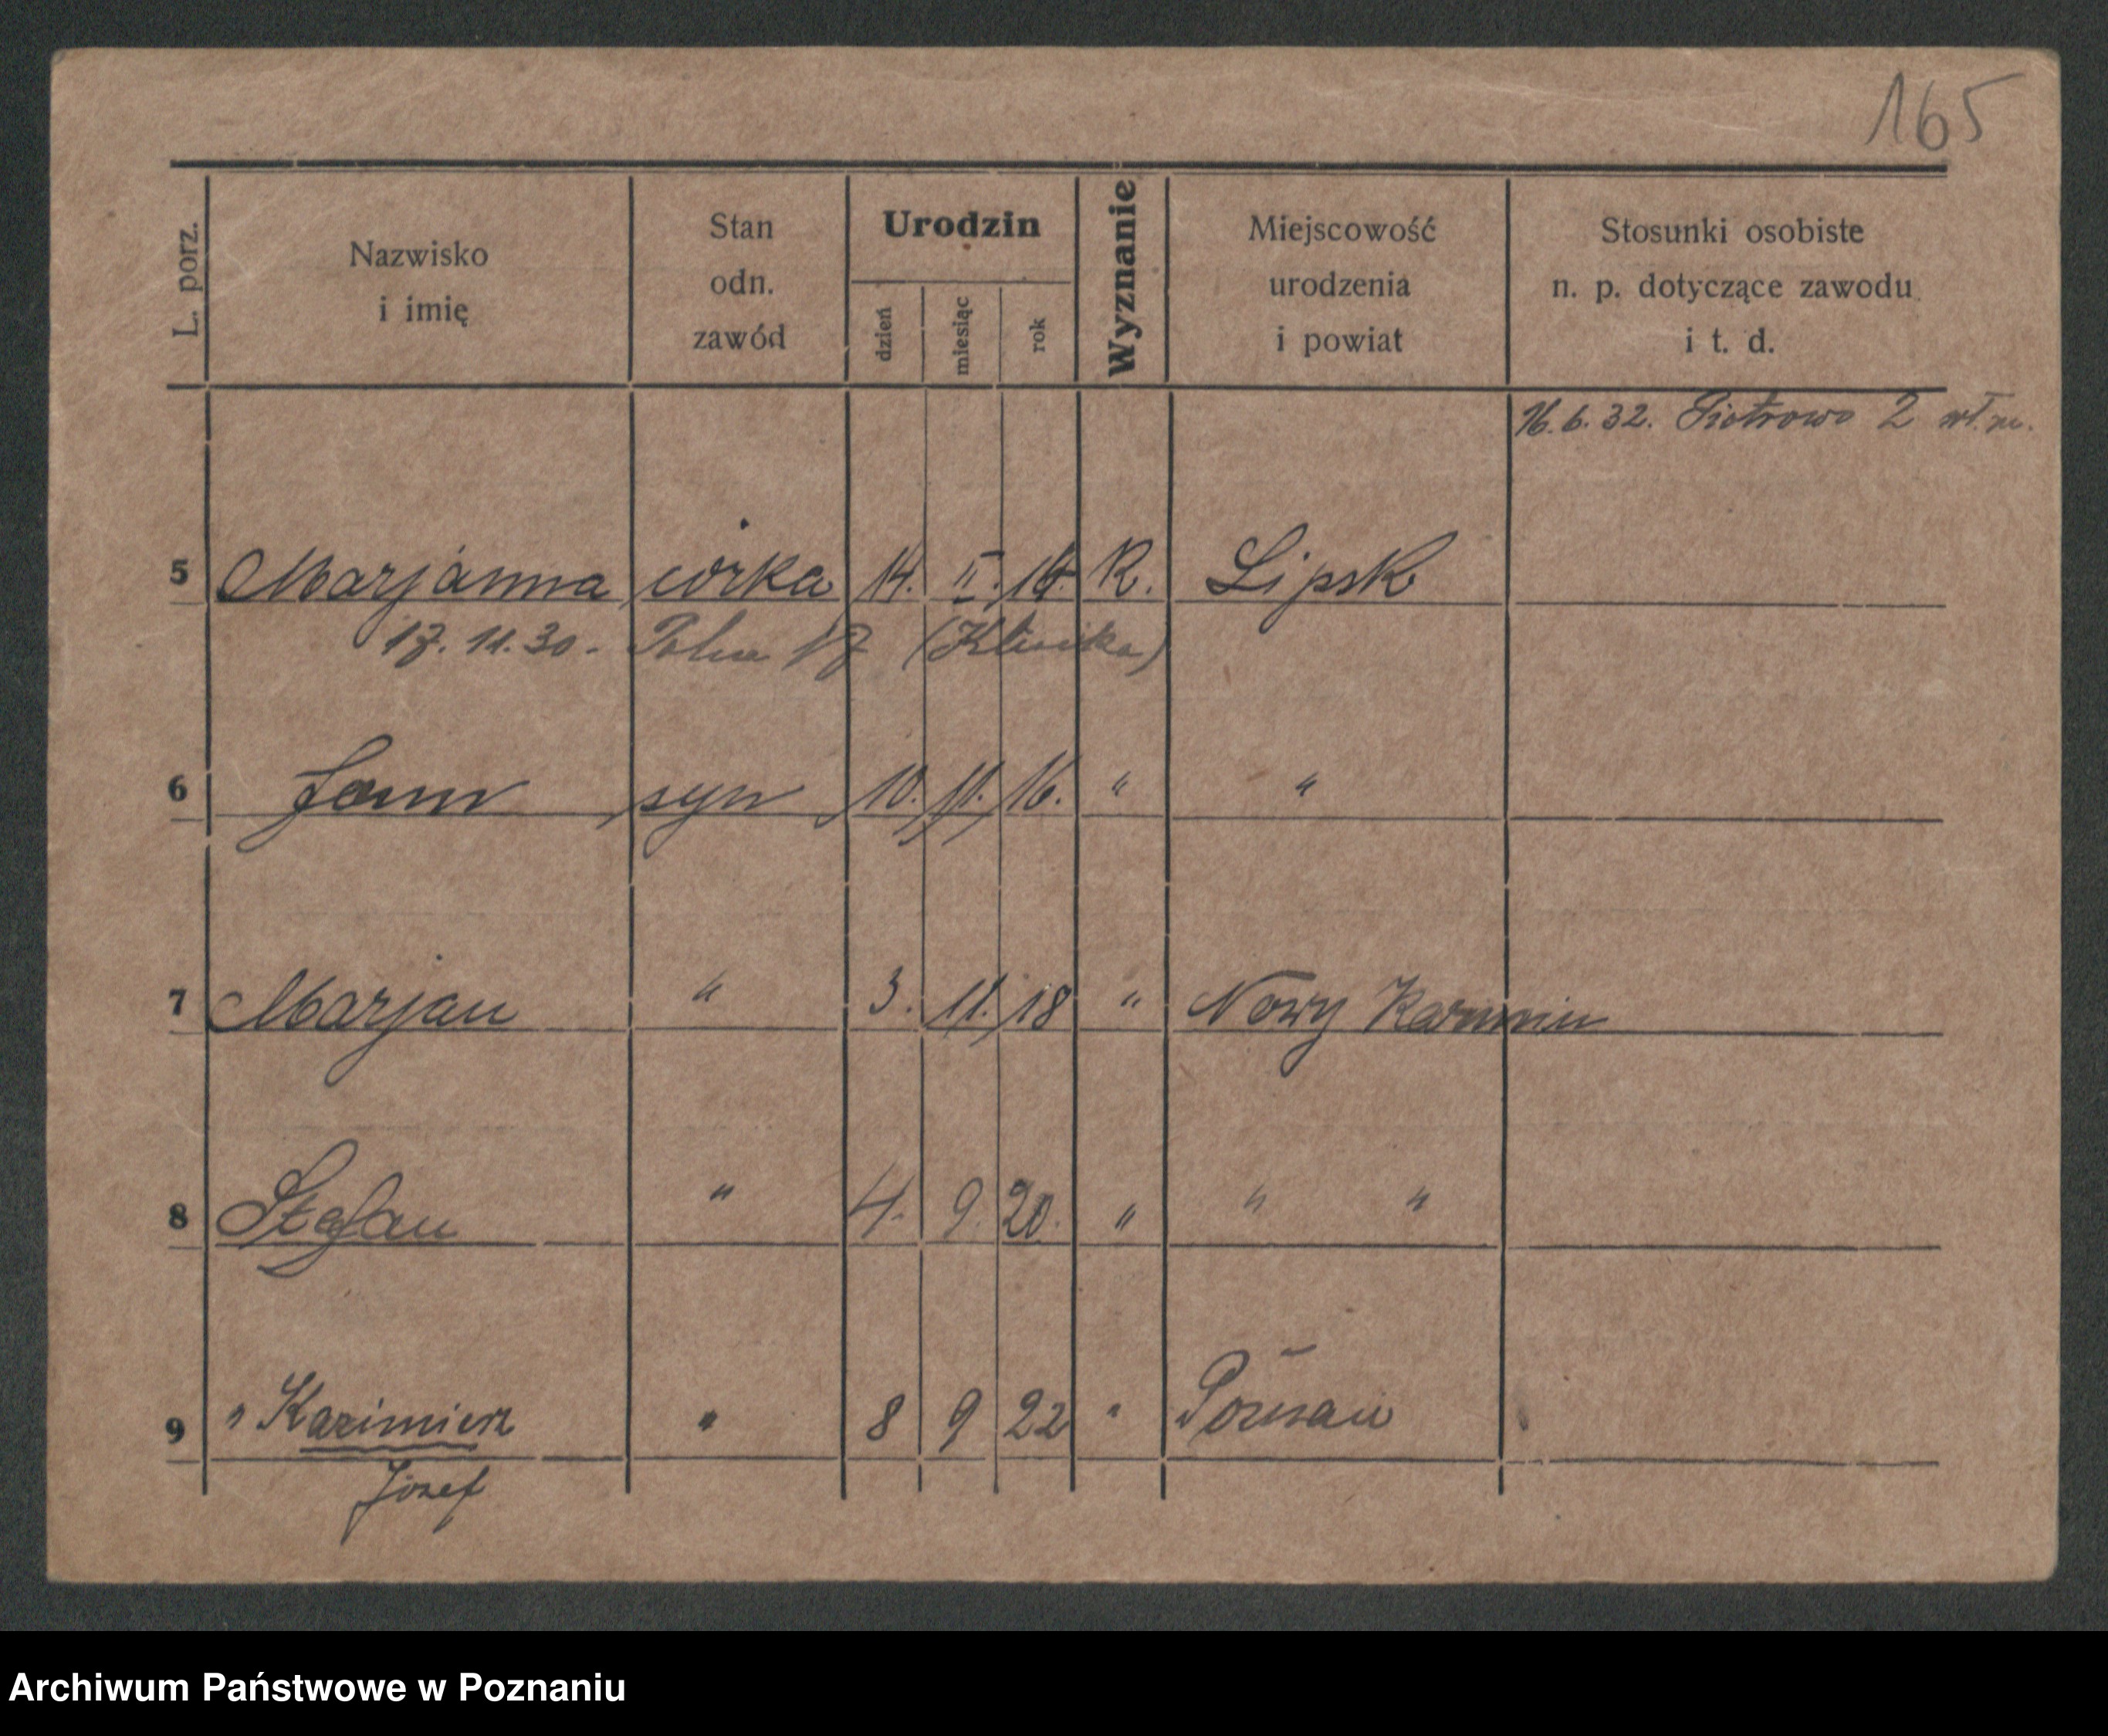 165
L. porz.
Nazwisko
i imię
Stan
odn.
zawód
Urodzin
dzień
miesiąc
rok
Wyznanie
Miejscowość
urodzenia
i powiat
Stosunki osobiste
n. p. dotyczące zawodu
i t. d.
16.6.32. Piotrowo 2
5 Marjanna córka 14. II. R. Lipsk
17. 11. 30. Polna 17 (Klinika)
6 Jann syn 10. 11. 16. " "
7 Marjan " 3. 11. 18 " Nowy Karmin
8 Stefan " 4. 9. 20. " " "
9 " Kazimierz " 8 9 22 " Poznań
Józef
Archiwum Państwowe w Poznaniu